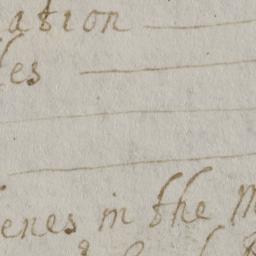 ation
les
enes in the M